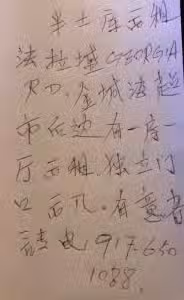 半土库西租
法拉盛 GEORGIA
RD. 金城法超
市后边有一房一
厅西租.独立门
口后孔.有意者
请电 917-650
1088.